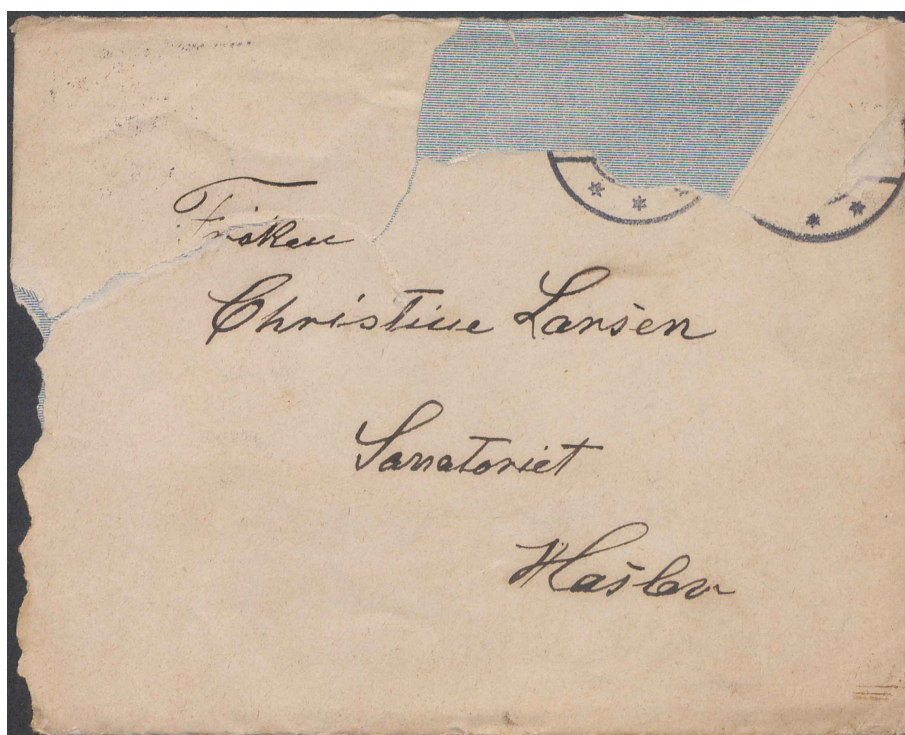 Frøken
Christine Larsen
Sanatoriet
Haslev